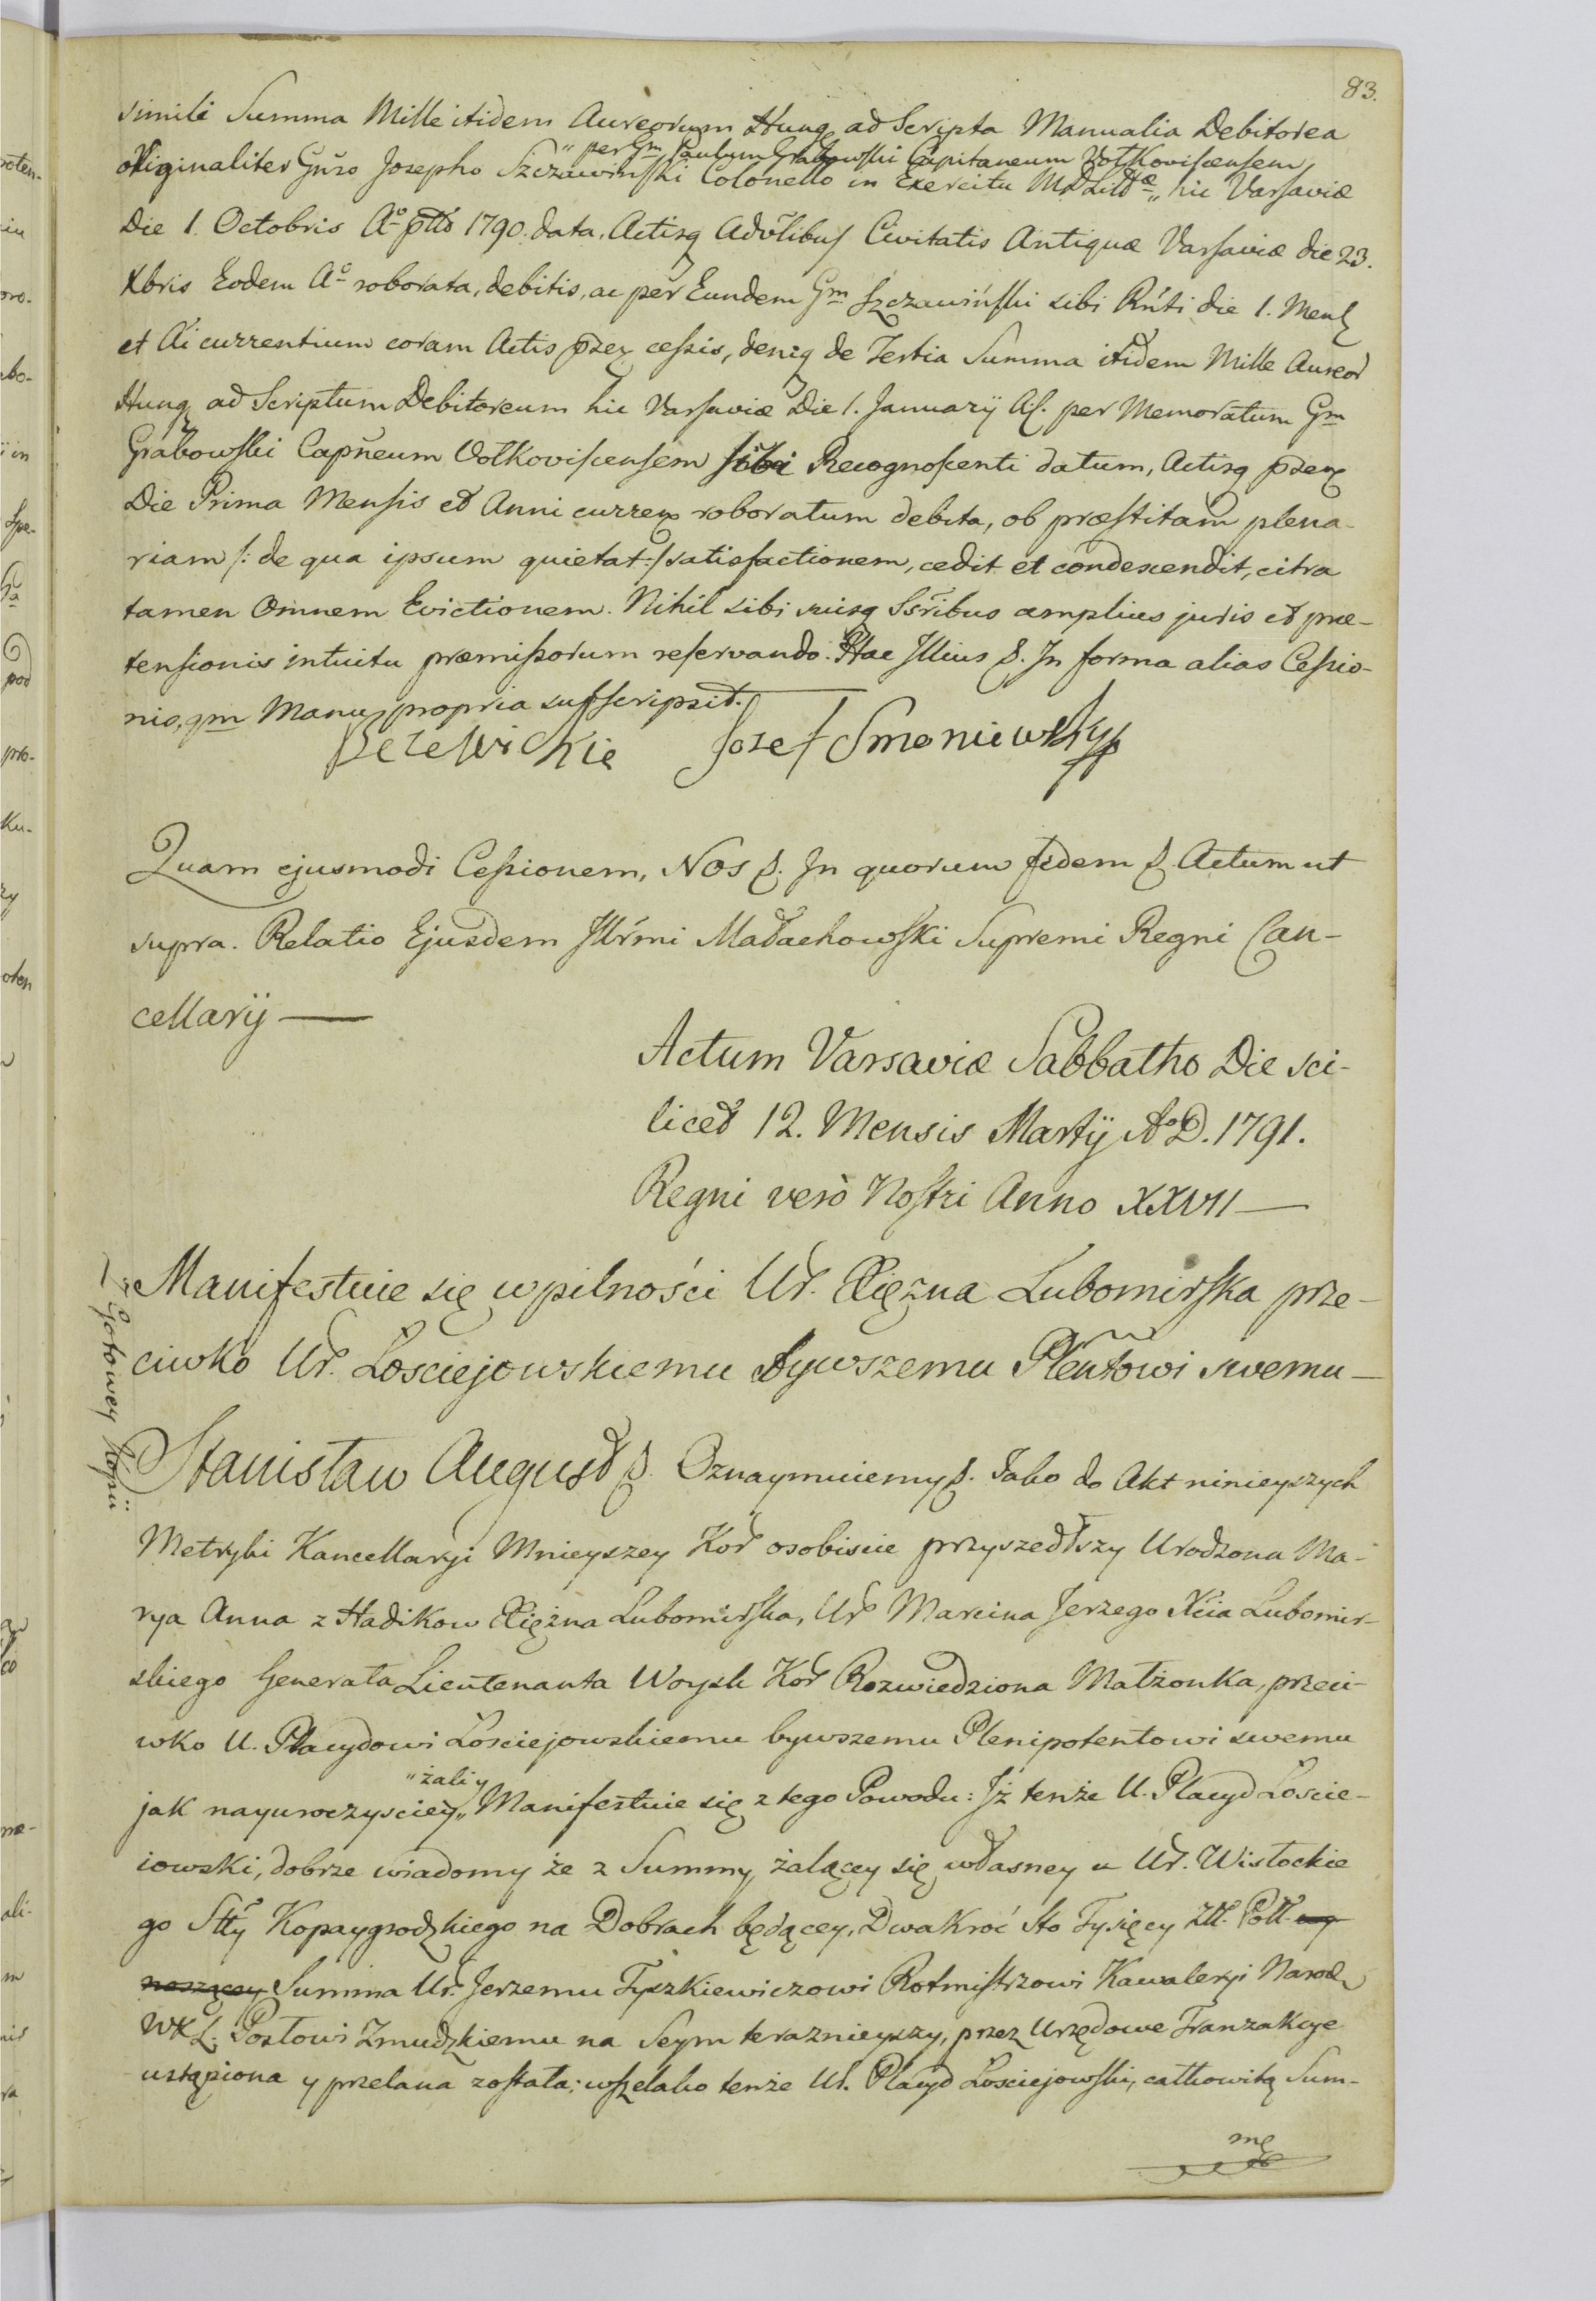 83.
simili Summa Mille itidem Aureorum Hung ad Scripta Manualia Debitorea
"per Gm Paulum Grabowski Capitaneum Vołkoviscensem,
originaliter Gnro Josepho Szczawinski Colonello in Exercitu MDLittæ" hic Varsaviæ
Die 1. Octobris Aº ptto 1790. data, Actisq Advłibus Civitatis Antiquæ Varsaviæ die 23.
Xbris Eodem Aº roborata, debitis, ac per Eundem Gm Szczawiński sibi Rnti die 1. Mens
et Ai currentium coram Actis psez cessis, deniq de Tertia Summa itidem Mille Aureor
Hung ad Scriptum Debitoreum hic Varsaviæ Die 1. Januarÿ A.c. per Memoratum Gm
Grabowski Capneum Vołkoviscensem sibi Recognoscenti datum, Actisq psez
Die Prima Mensis et Anni currex roboratum debita, ob præstitam plena-
riam /: de qua ipsum quietat :/ satisfactionem, cedit et condescendit, citra
tamen Omnem Evictionem. Nihil sibi suisq Ssribus amplius juris et præ-
tensionis intuitu præmissorum reservando. Hac Illius &. In forma alias Cessio-
nis, qm Manu propria subscripsit.
Jozef Smoniewsky
Quam ejusmodi Cessionem, Nos &. In quorum fidem &. Actum ut
supra. Relatio Ejusdem Illrmi Małachowski Supremi Regni Can-
cellarÿ —
Actum Varsaviæ Sabbatho Die sci-
licet 12. Mensis Martÿ AºD. 1791.
Regni verò Nostri Anno XXVII —
Manifestuie się w pilności Ur. Xiężna Lubomirska prze-
ciwko Ur. Łosciejowskiemu Bywszemu Plentowi swemu —
z Gotowey kopii
Stanisław August &. Oznaymuiemy &. Iako do Akt ninieyszych
Metryki Kancellaryi Mnieyszey Kor osobiscie przyszedłszy Urodzona Ma-
rya Anna z Hadikow Xiężna Lubomirska, Ur Marcina Jerzego Xcia Lubomir-
skiego Generała Lieutenanta Woysk Kor Rozwiedziona Małżonka, przeci-
wko U. Placydowi Łosciejowskiemu bywszemu Plenipotentowi swemu
"żali y
jak nayuroczysciey" Manifestuie się z tego Powodu: Iż tenże U. Placyd Łoscie-
iowski, dobrze wiadomy że z Summy żalącey się własney u Ur. Wisłockie
go Stty Kopaygrodzkiego na Dobrach będącey, Dwakroć sto Tysięcy Zll. Poll. wy
noszącey Summa Ur. Jerzemu Tyszkiewiczowi Rotmistrzowi Kawaleryi Narod
WXL. Posłowi Zmudzkiemu na Seym teraznieyszy, przez Urzędowe Tranzakcye
ustąpiona y przelana została; wszelako tenże Ur. Placyd Łosciejowski, całkowitą Sum-
mę